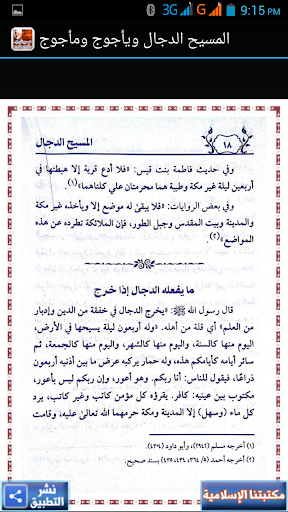 3G G 9:15 PM
المسيح الدجال ويأجوج ومأجوج
١٨ المسيح الدجال
وفي حديث فاطمة بنت قيس: «فلا أدع قرية إلا هبطتها في
أربعين ليلة غير مكة وطيبة هما محرمتان علي كلتاهما»(١).
وفي بعض الروايات: «فلا يبقى له موضع إلا ويأخذه غير مكة
والمدينة وبيت المقدس وجبل الطور، فإن الملائكة تطرده عن هذه
المواضع»(٢).
ما يفعله الدجال إذا خرج
قال رسول الله ﷺ: «يخرج الدجال في خفقة من الدين وإدبار
من العلم» أي قلة من أهله. «وله أربعون ليلة يسيحها في الأرض،
اليوم منها كالسنة، واليوم منها كالشهر، واليوم منها كالجمعة، ثم
سائر أيامه كأيامكم هذه، وله حمار يركبه عرض ما بين أذنيه أربعون
ذراعًا، فيقول للناس: أنا ربكم. وهو أعور، وإن ربكم ليس بأعور،
مكتوب بين عينيه: كافر. يقرؤه كل مؤمن كاتب وغير كاتب، يرد
كل ماء (وسهل) إلا المدينة ومكة حرمهما الله تعالى عليه، وقامت
(١) أخرجه مسلم (٢٩٤٢)، وأبو داود (٤٣٢٦)
(٢) أخرجه أحمد (٥/ ٣٦٤، ٤٣٤، ٤٣٥) بسند صحيح.
نشر التطبيق
مكتبتنا الإسلامية